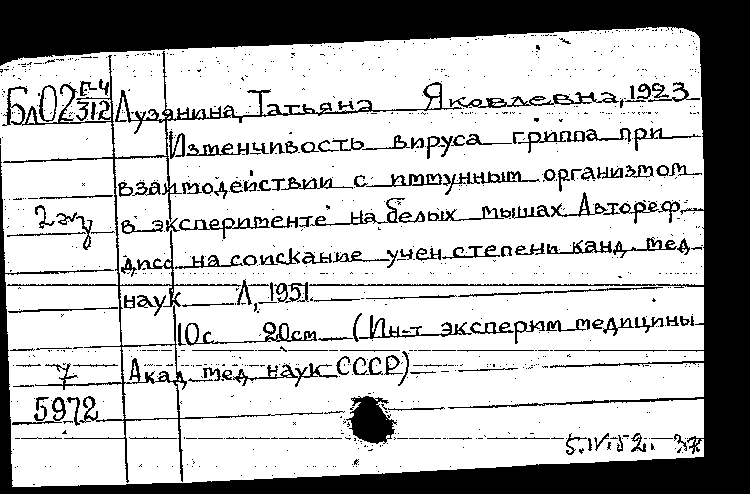 Бл02 Г-4/312 Лузянина, Татьяна Яковлевна, 1923
Изменчивость вируса гриппа при
взаимодействии с иммунным организмом
2 экз в эксперименте на белых мышах Автореф.
дисс на соискание учен степени канд. мед
наук Л, 1951
10с 20см (Ин-т эксперим медицины
7 Акад мед наук СССР)
5972
5.IV.52.